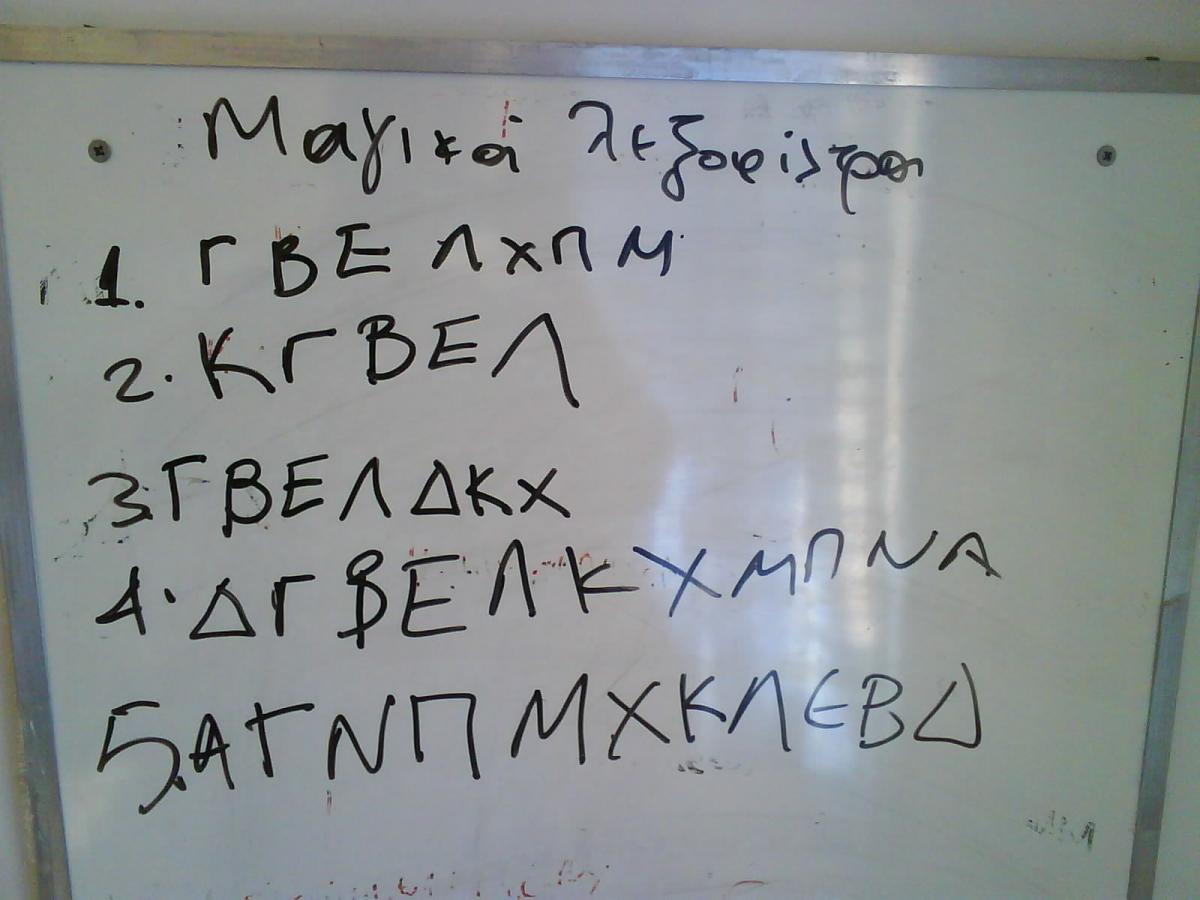 Μαγικά λεξοφίλτρα
1. Γ Β Ε Λ Χ Π Μ
2. Κ Γ Β Ε Λ
3. Γ Β Ε Λ Δ Κ Χ
4. Δ Γ Β Ε Λ Κ Χ Μ Π Ν Α
5. Α Γ Ν Π Μ Χ Κ Λ Ε Β Δ